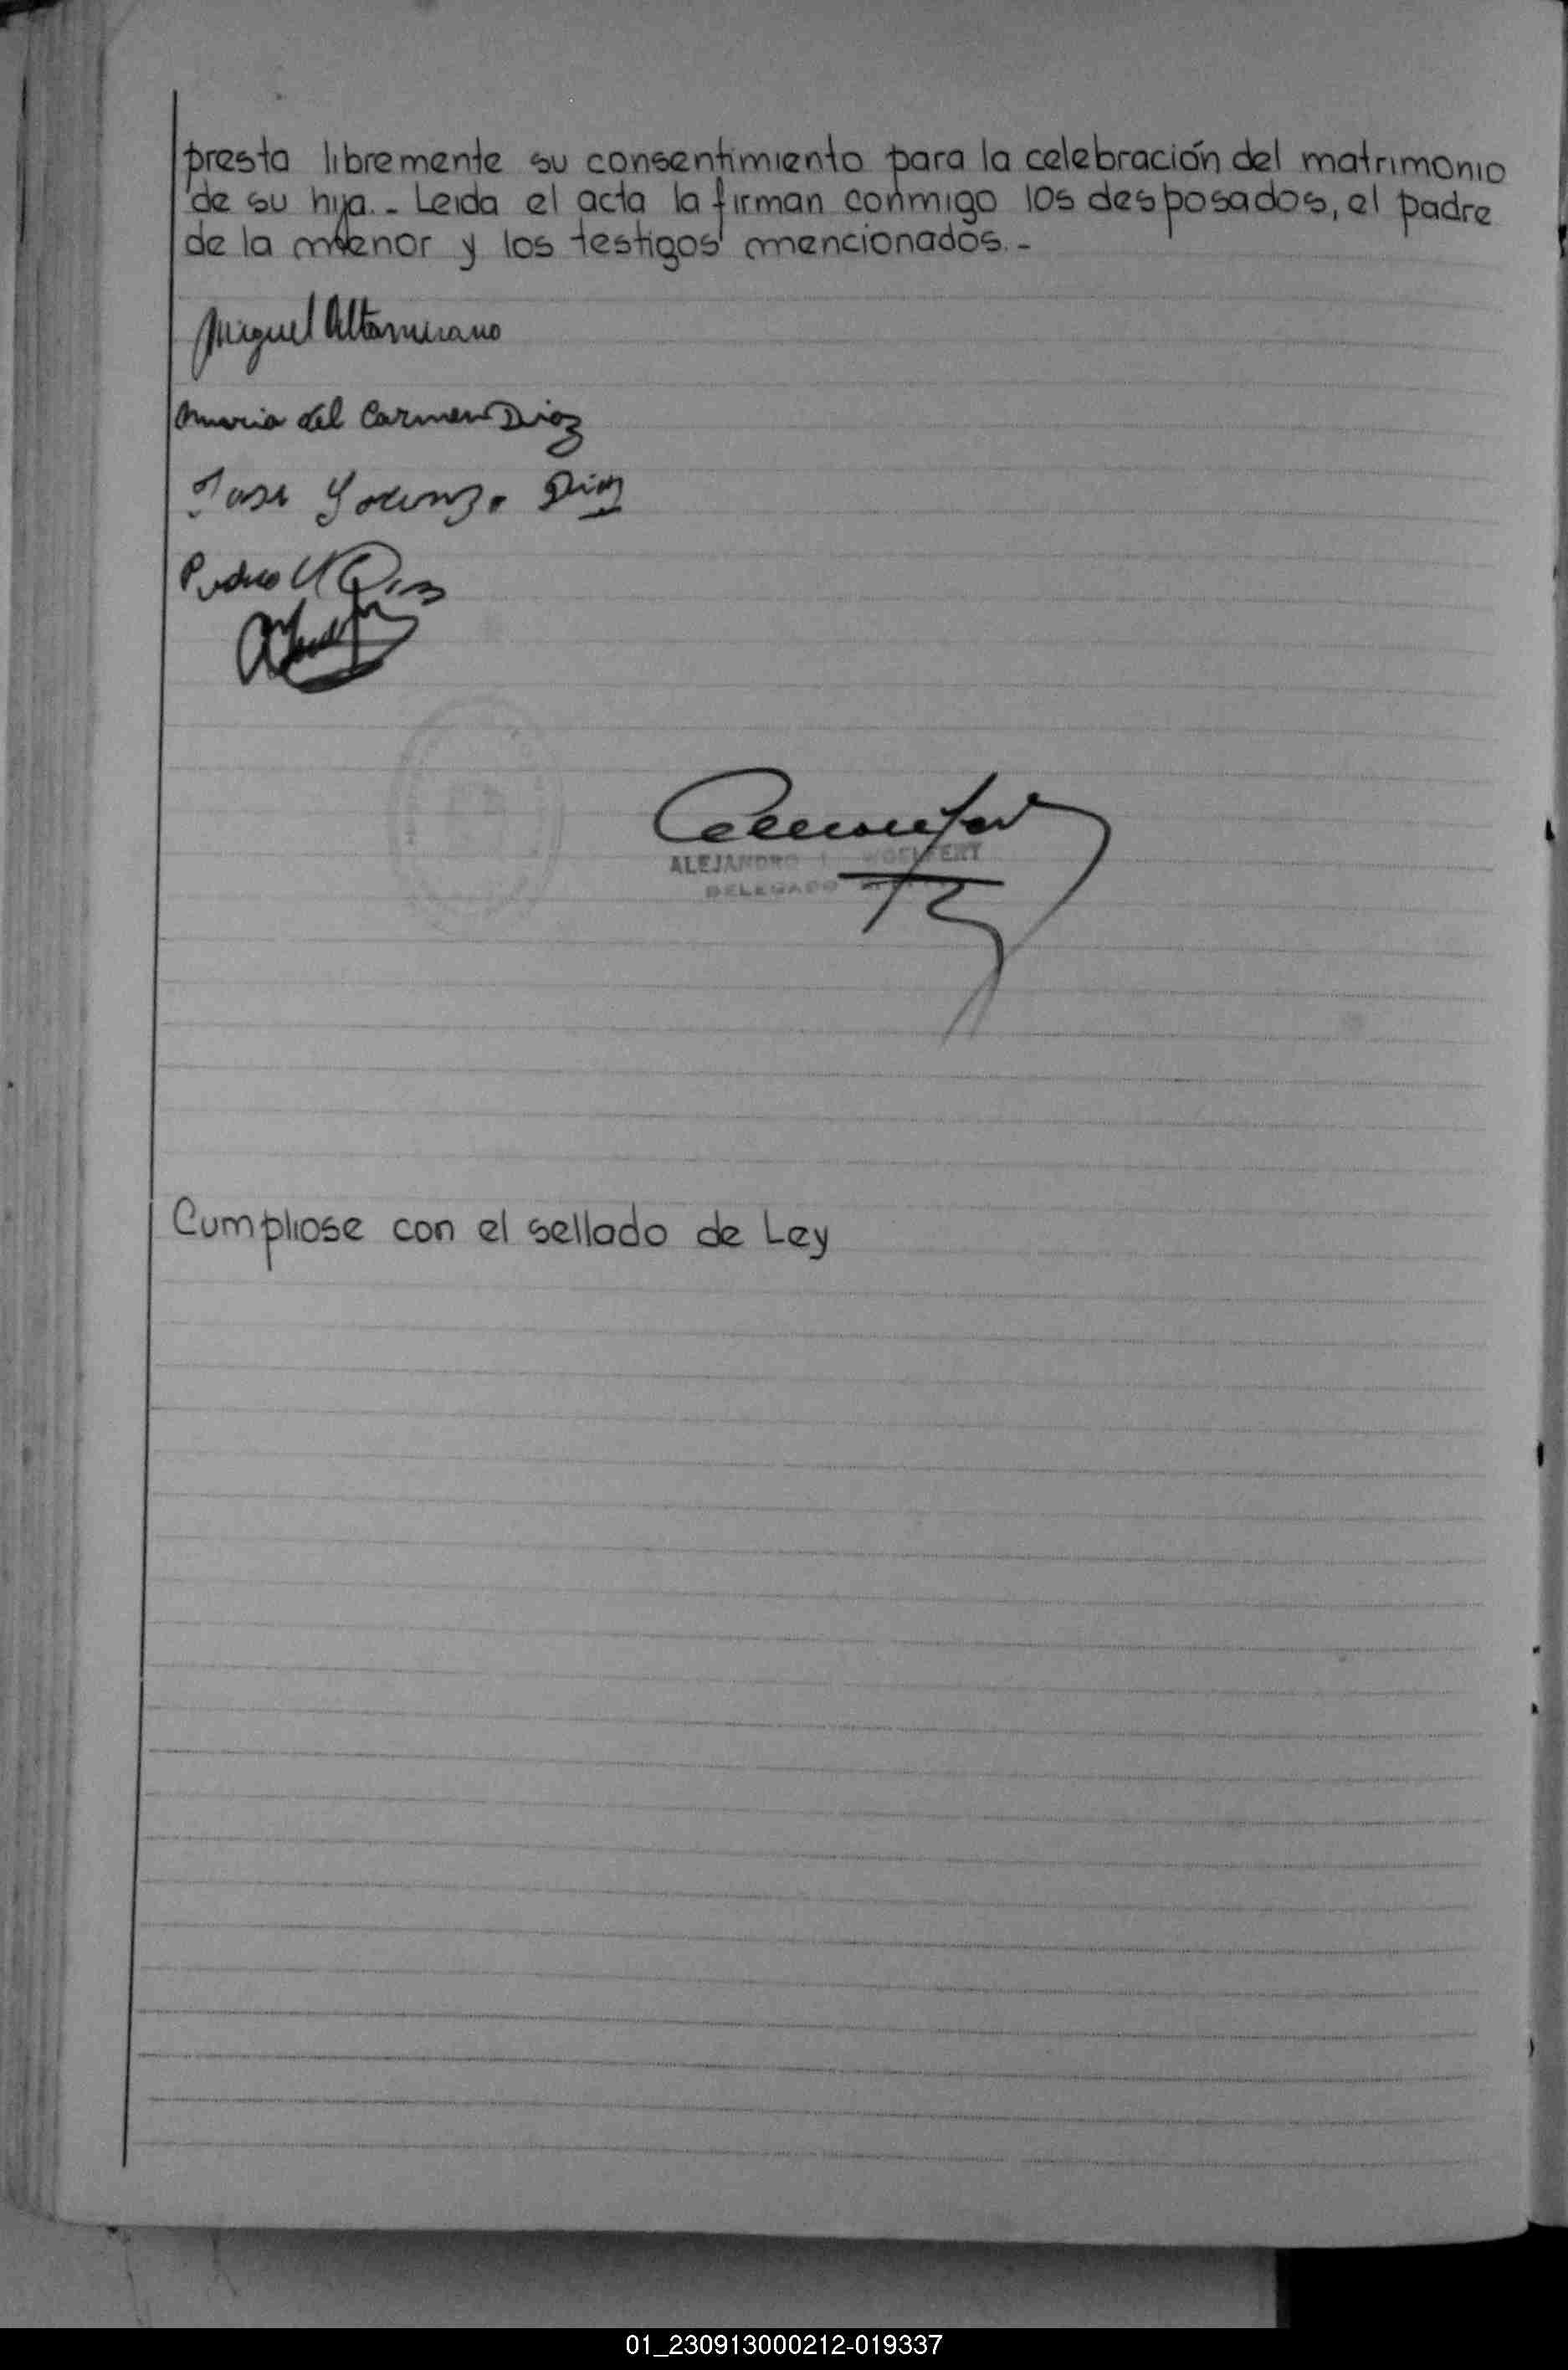 presta libremente su consentimiento para la celebración del matrimonio
de su hija.- Leida el acta la firman conmigo los desposados, el padre
de la menor y los testigos mencionados.-
Miguel Altamirano
Maria del Carmen Diaz
Jose Lorenzo Diaz
Pedro
ALEJANDRO WOELFERT
DELEGADO
Cumpliose con el sellado de Ley
01_230913000212-019337